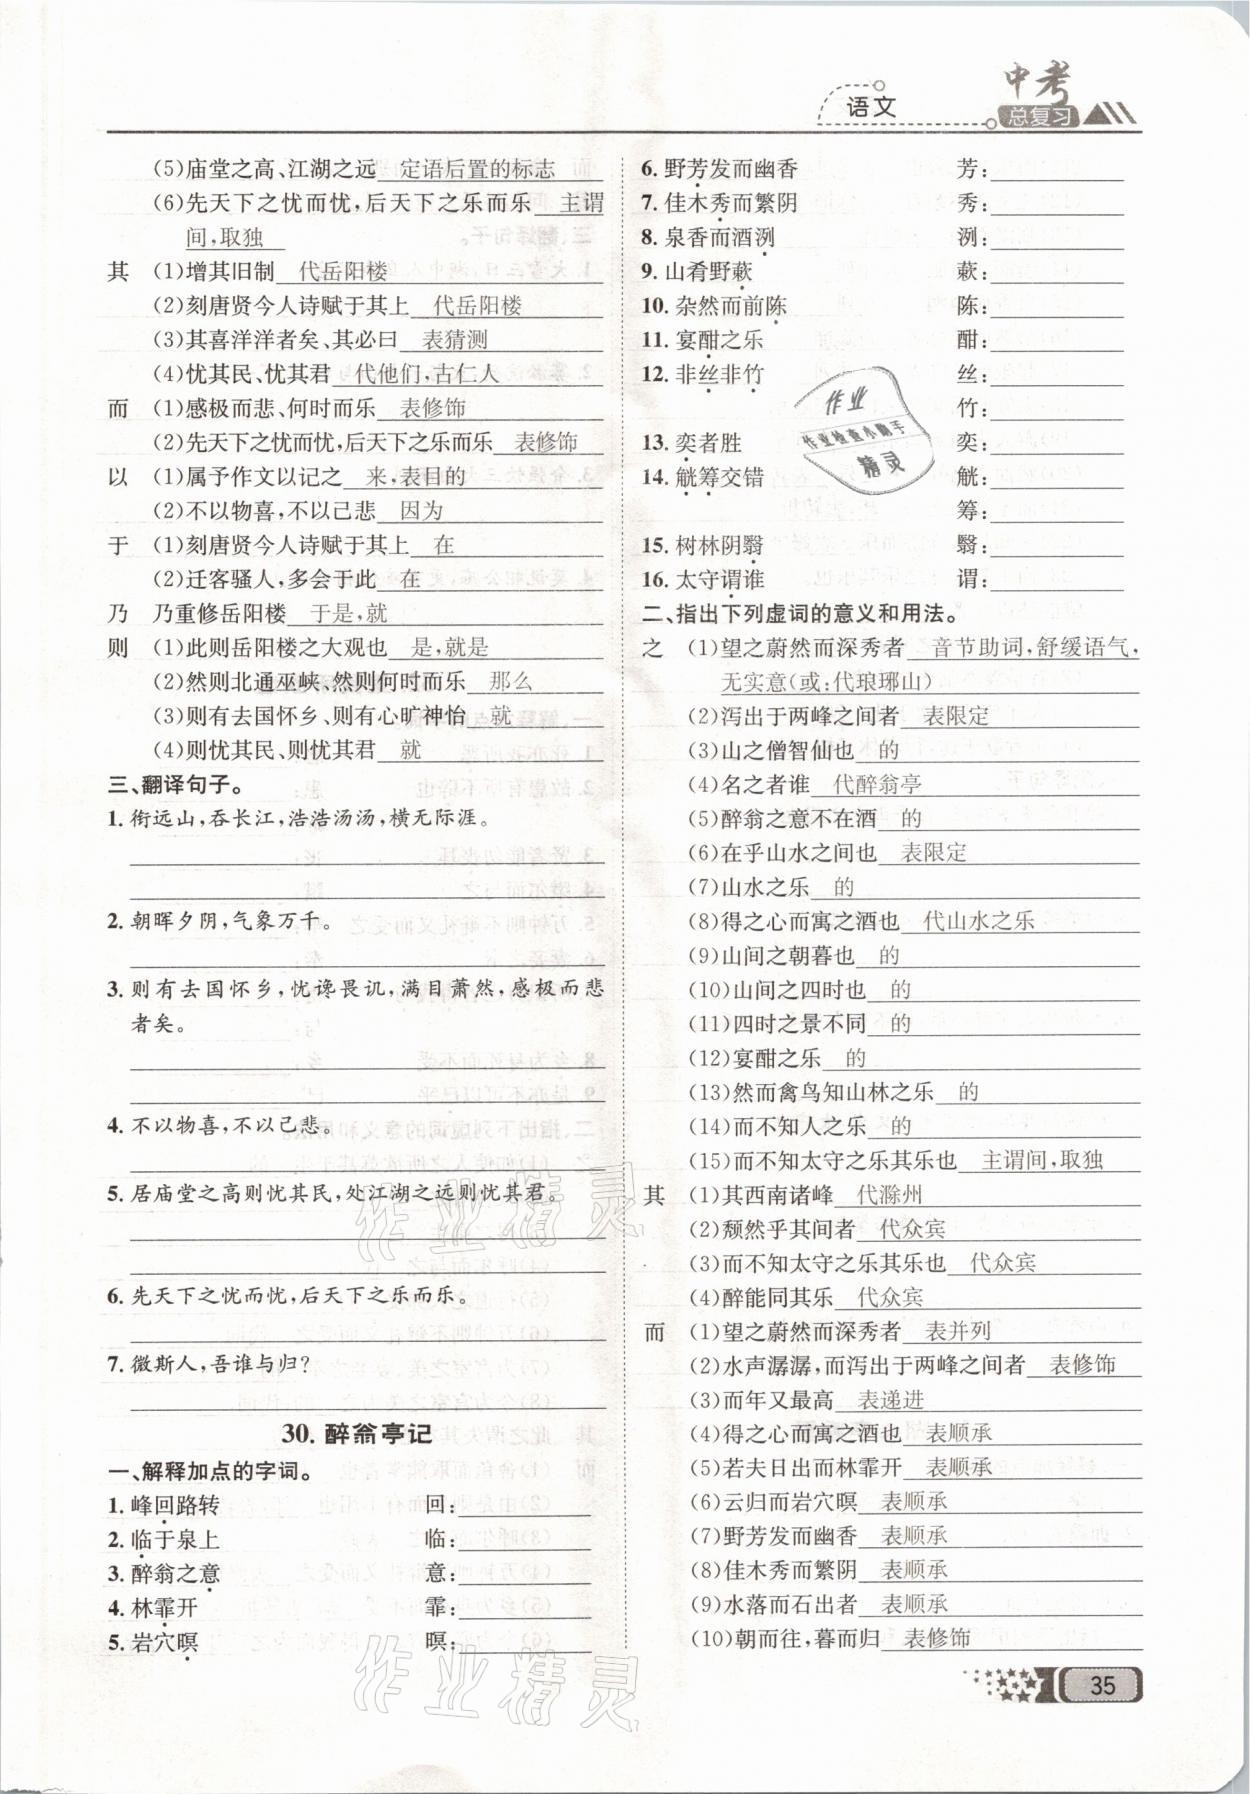 语文
中考
总复习
(5)庙堂之高、江湖之远 定语后置的标志
(6)先天下之忧而忧,后天下之乐而乐 主谓
间,取独
其 (1)增其旧制 代岳阳楼
(2)刻唐贤今人诗赋于其上 代岳阳楼
(3)其喜洋洋者矣、其必曰 表猜测
(4)忧其民、忧其君 代他们,古仁人
而 (1)感极而悲、何时而乐 表修饰
(2)先天下之忧而忧,后天下之乐而乐 表修饰
以 (1)属予作文以记之 来,表目的
(2)不以物喜,不以己悲 因为
于 (1)刻唐贤今人诗赋于其上 在
(2)迁客骚人,多会于此 在
乃 乃重修岳阳楼 于是,就
则 (1)此则岳阳楼之大观也 是,就是
(2)然则北通巫峡、然则何时而乐 那么
(3)则有去国怀乡、则有心旷神怡 就
(4)则忧其民、则忧其君 就
三、翻译句子。
1. 衔远山,吞长江,浩浩汤汤,横无际涯。
2. 朝晖夕阴,气象万千。
3. 则有去国怀乡,忧谗畏讥,满目萧然,感极而悲
者矣。
4. 不以物喜,不以己悲。
5. 居庙堂之高则忧其民,处江湖之远则忧其君。
6. 先天下之忧而忧,后天下之乐而乐。
7. 微斯人,吾谁与归?
30. 醉翁亭记
一、解释加点的字词。
1. 峰回路转 回:
2. 临于泉上 临:
3. 醉翁之意 意:
4. 林霏开 霏:
5. 岩穴暝 暝:
6. 野芳发而幽香 芳:
7. 佳木秀而繁阴 秀:
8. 泉香而酒洌 洌:
9. 山肴野蔌 蔌:
10. 杂然而前陈 陈:
11. 宴酣之乐 酣:
12. 非丝非竹 丝:
竹:
13. 奕者胜 奕:
14. 觥筹交错 觥:
筹:
15. 树林阴翳 翳:
16. 太守谓谁 谓:
二、指出下列虚词的意义和用法。
之 (1)望之蔚然而深秀者 音节助词,舒缓语气,
无实意(或:代琅琊山)
(2)泻出于两峰之间者 表限定
(3)山之僧智仙也 的
(4)名之者谁 代醉翁亭
(5)醉翁之意不在酒 的
(6)在乎山水之间也 表限定
(7)山水之乐 的
(8)得之心而寓之酒也 代山水之乐
(9)山间之朝暮也 的
(10)山间之四时也 的
(11)四时之景不同 的
(12)宴酣之乐 的
(13)然而禽鸟知山林之乐 的
(14)而不知人之乐 的
(15)而不知太守之乐其乐也 主谓间,取独
其 (1)其西南诸峰 代滁州
(2)颓然乎其间者 代众宾
(3)而不知太守之乐其乐也 代众宾
(4)醉能同其乐 代众宾
而 (1)望之蔚然而深秀者 表并列
(2)水声潺潺,而泻出于两峰之间者 表修饰
(3)而年又最高 表递进
(4)得之心而寓之酒也 表顺承
(5)若夫日出而林霏开 表顺承
(6)云归而岩穴暝 表顺承
(7)野芳发而幽香 表顺承
(8)佳木秀而繁阴 表顺承
(9)水落而石出者 表顺承
(10)朝而往,暮而归 表修饰
作业
作业检查小助手
精灵
作业精灵
作业精灵
35